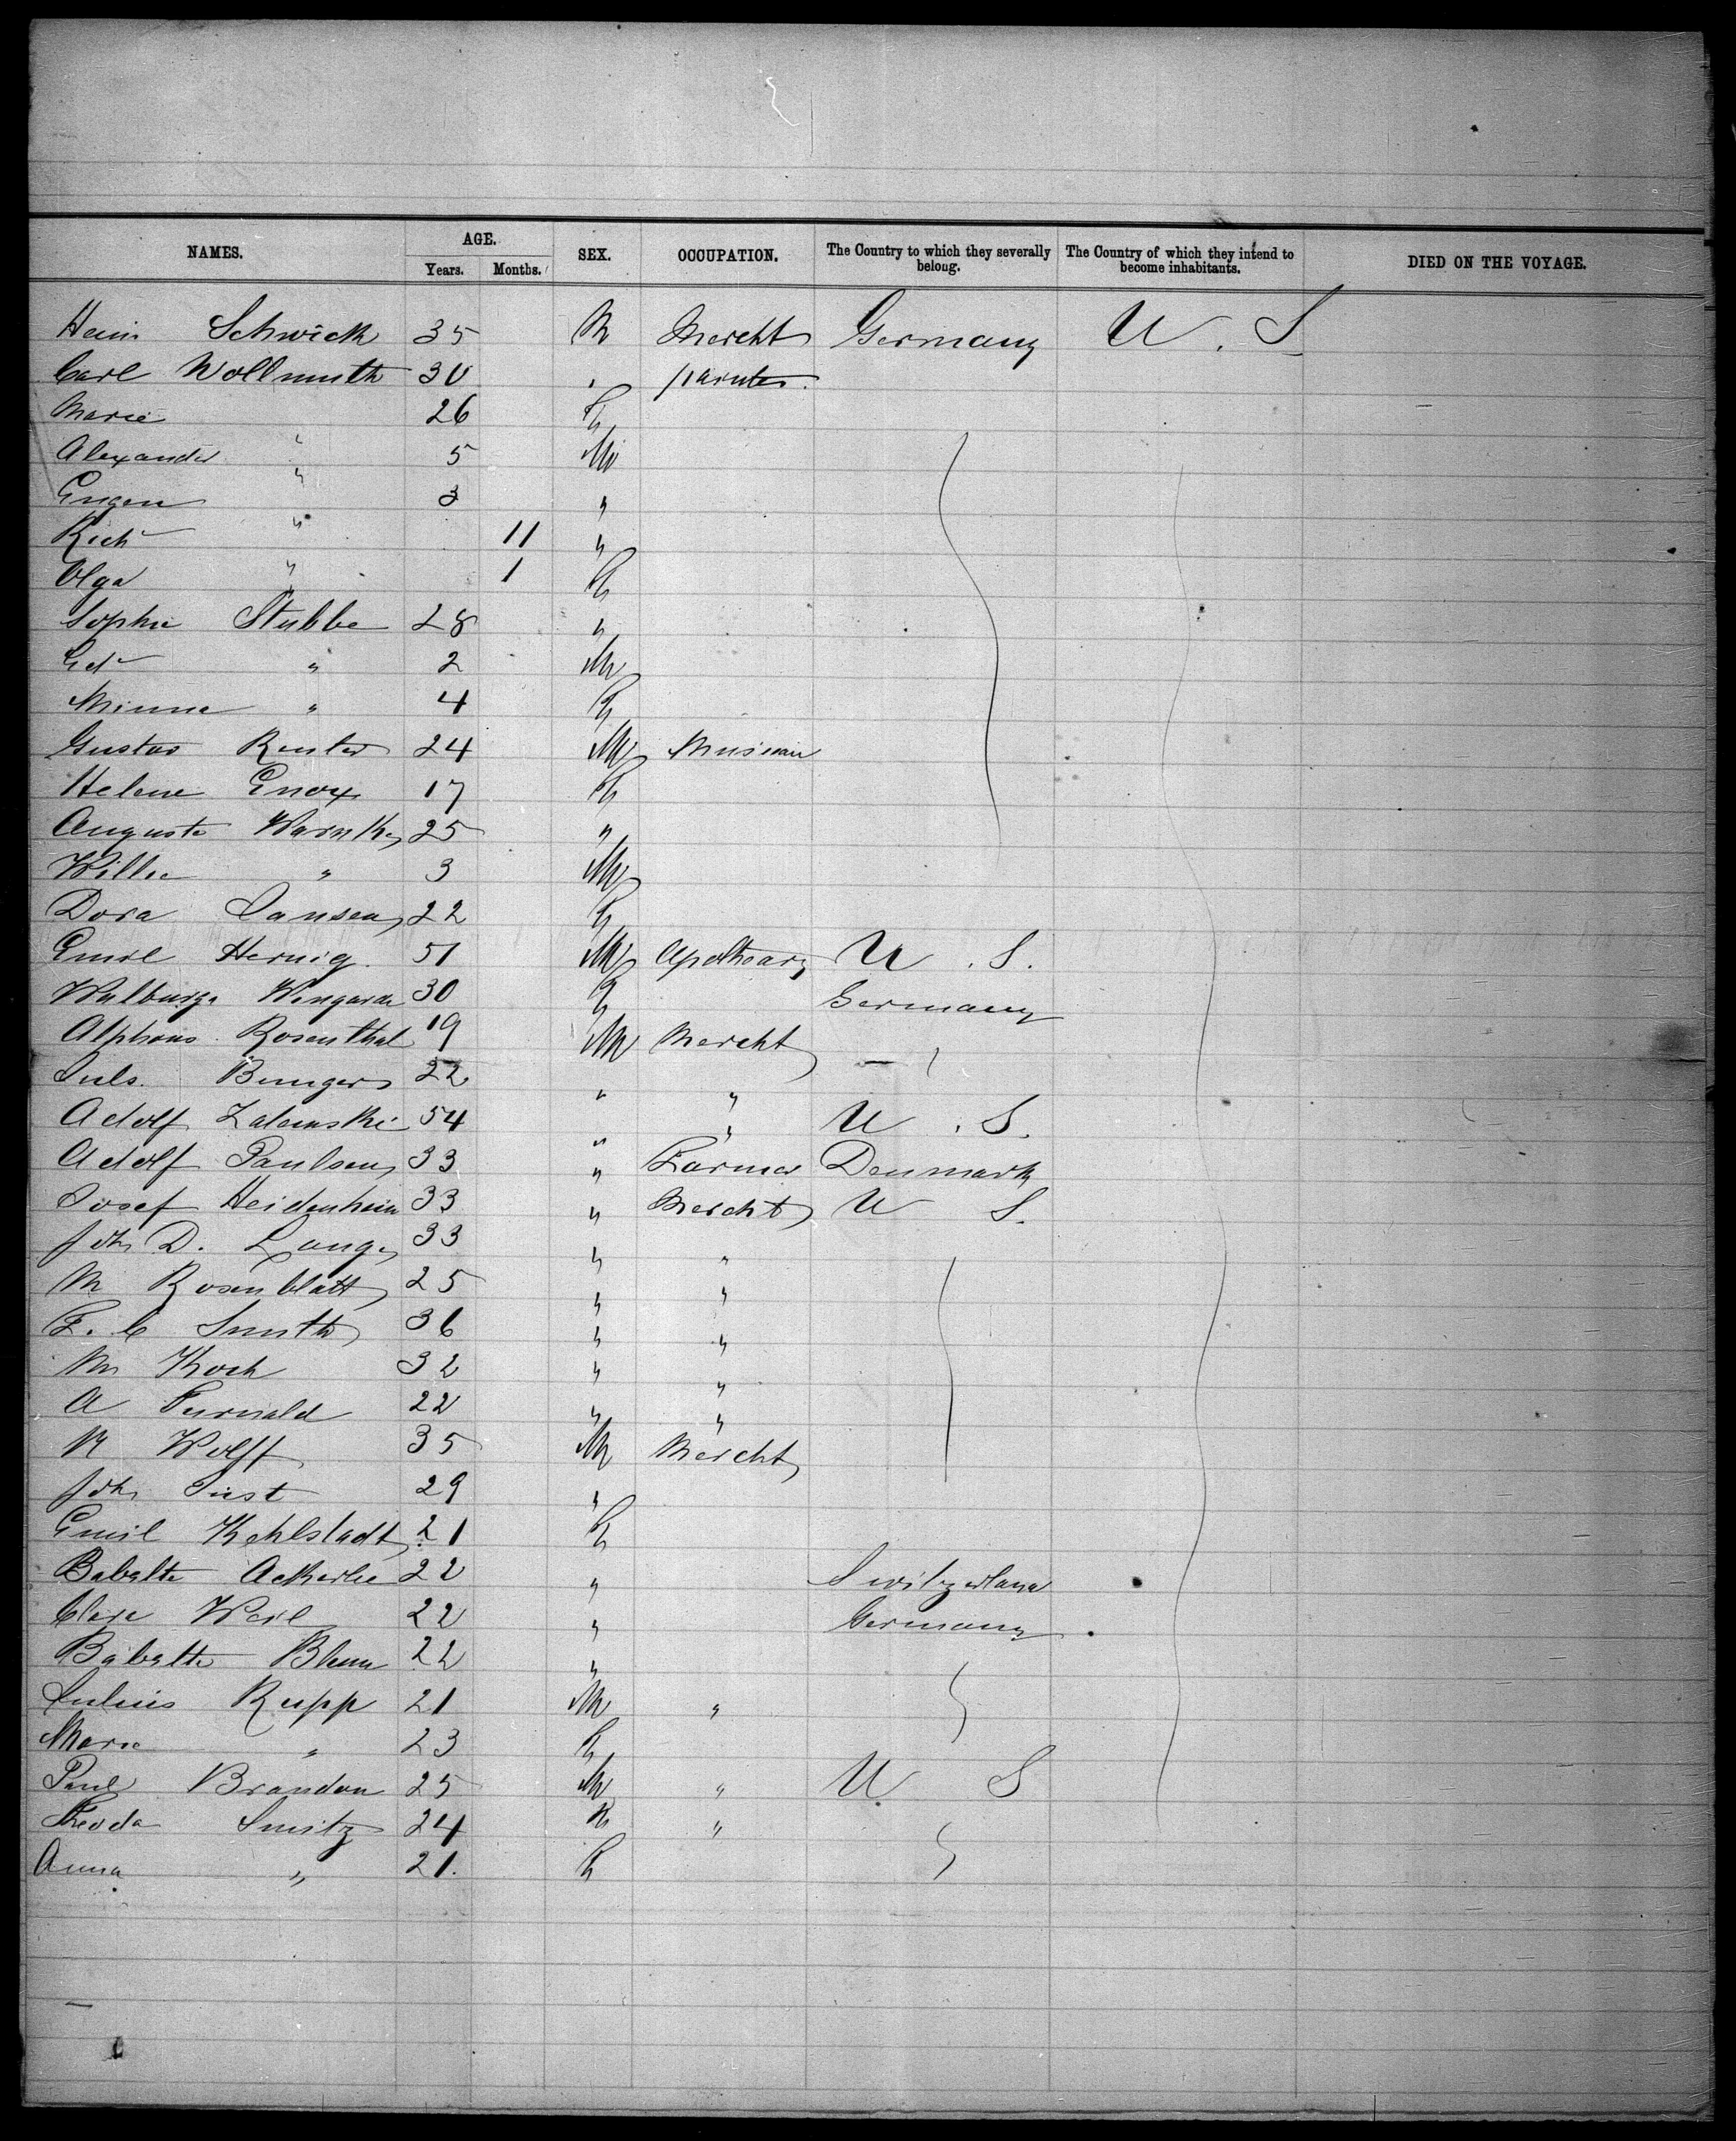 NAMES. AGE. SEX. OCCUPATION. The Country to which they severally belong. The Country of which they intend to become inhabitants. DIED ON THE VOYAGE.
Years. Months.
Hein Schwieth 35 M Mercht Germany U. S
Carl Wollmuth 30 " painter
Marie 26 F
Alexander " 5 M
Eugen " 3 "
Rich " 11 "
Olga " 1 F
Sophie Stubbe 28 "
Ed " 2 M
Minna " 4 F
Gustav Reuter 24 M Musician
Helene Enox 17 F
Auguste Warnke 25 "
Willie " 3 M
Dora Jansen 22 F
Emil Hernig 51 M Apothecary U. S.
Walburga 30 F Germany
Alphons Rosenthal 19 M Mercht — "
Juls. Bungers 22 " "
Adolf Zalenski 54 " " U. S.
Adolf Paulsen 33 " Farmer Denmark
Josef Heidenheim 33 " Mercht U S.
Joh D. Lange 33 " "
M Rosenblatt 25 " "
F. C Smith 36 " "
M Koch 32 " "
A 22 " "
M Wolff 35 M Mercht
Joh Just 29 "
Emil Kehlstadt 21 F
Babette Ackerlie 22 " Switzerland
Clara Weil 22 " Germany
Babette Blum 22 "
Julius Rupp 21 M "
Marie " 23 F
Paul Brandon 25 M " U S
Theoda Smitz 24 M "
Anna " 21. F